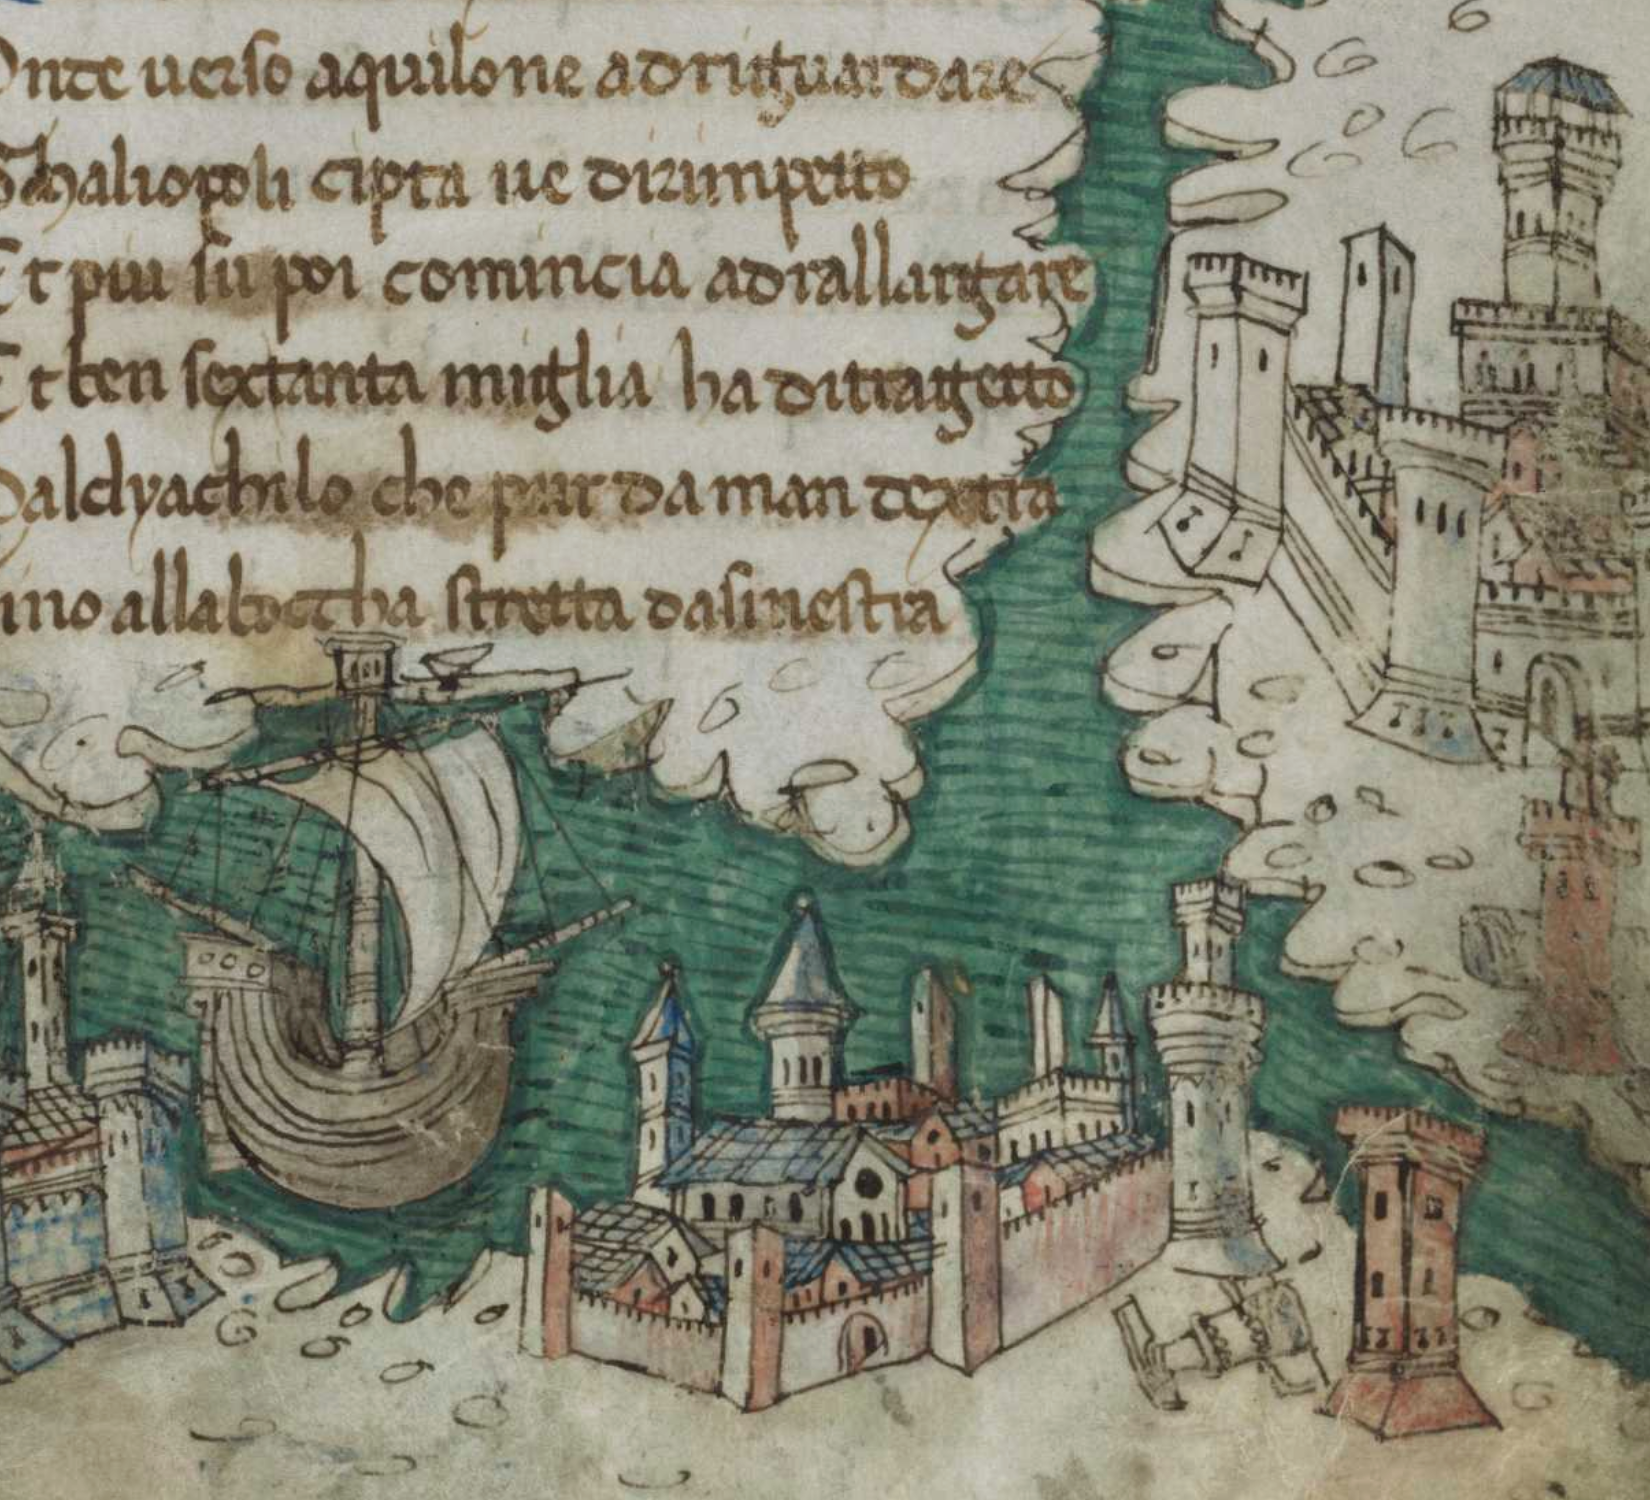 Onde uerso aquilone adriguardare
Ghaliopoli cipta ue dirimpetto
Et piu su poi comincia adrallargare
Et ben sextanta miglia ha ditragetto
Daldyachilo che pur da man dextra
ino allaboccha stretta dasinestra